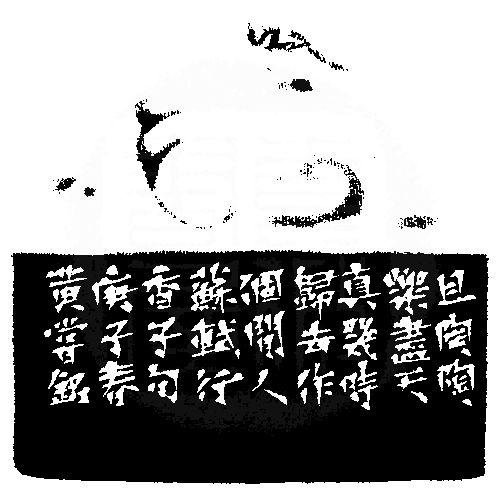 且匋陶
樂盡天
真幾時
歸去作
個閒人
蘇軾行
香子句
庚子春
黃嘗銘